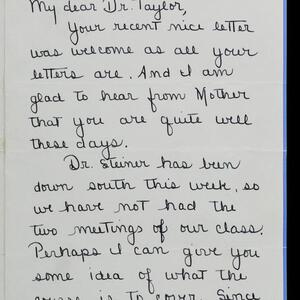 My dear Dr. Taylor,
Your recent nice letter
was welcome as all your
letters are. And I am
glad to hear from Mother
that you are quite well
these days.
Dr. Steiner has been
down south this week, so
we have not had the
two meetings of our class.
Perhaps I can give you
some idea of what the
course is to cover. Since